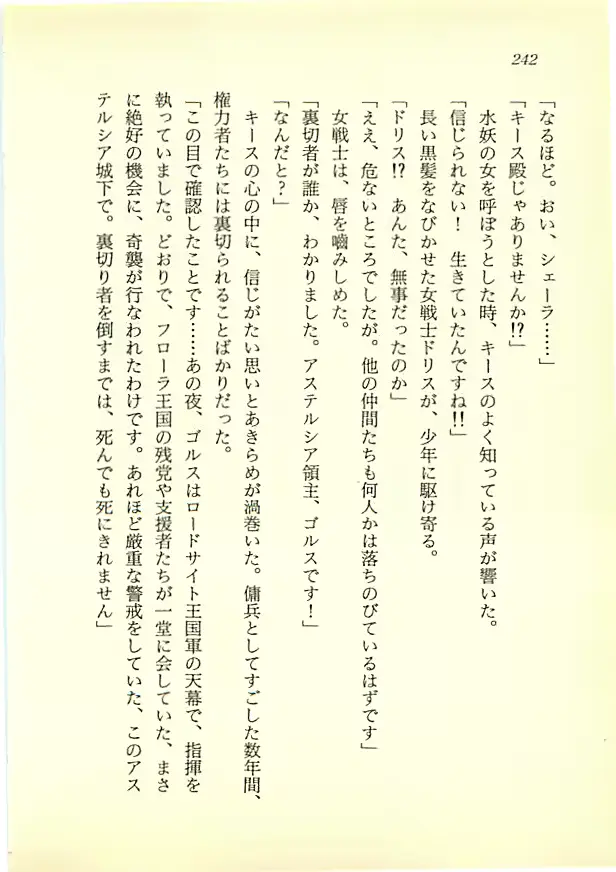 242
「なるほど。おい、シェーラ……」
「キース殿じゃありませんか!?」
水妖の女を呼ぼうとした時、キースのよく知っている声が響いた。
「信じられない！　生きていたんですね!!」
長い黒髪をなびかせた女戦士ドリスが、少年に駆け寄る。
「ドリス!?　あんた、無事だったのか」
「ええ、危ないところでしたが。他の仲間たちも何人かは落ちのびているはずです」
女戦士は、唇を嚙みしめた。
「裏切者が誰か、わかりました。アステルシア領主、ゴルスです！」
「なんだと？」
キースの心の中に、信じがたい思いとあきらめが渦巻いた。傭兵としてすごした数年間、
権力者たちには裏切られることばかりだった。
「この目で確認したことです……あの夜、ゴルスはロードサイト王国軍の天幕で、指揮を
執っていました。どおりで、フローラ王国の残党や支援者たちが一堂に会していた、まさ
に絶好の機会に、奇襲が行なわれたわけです。あれほど厳重な警戒をしていた、このアス
テルシア城下で。裏切り者を倒すまでは、死んでも死にきれません」